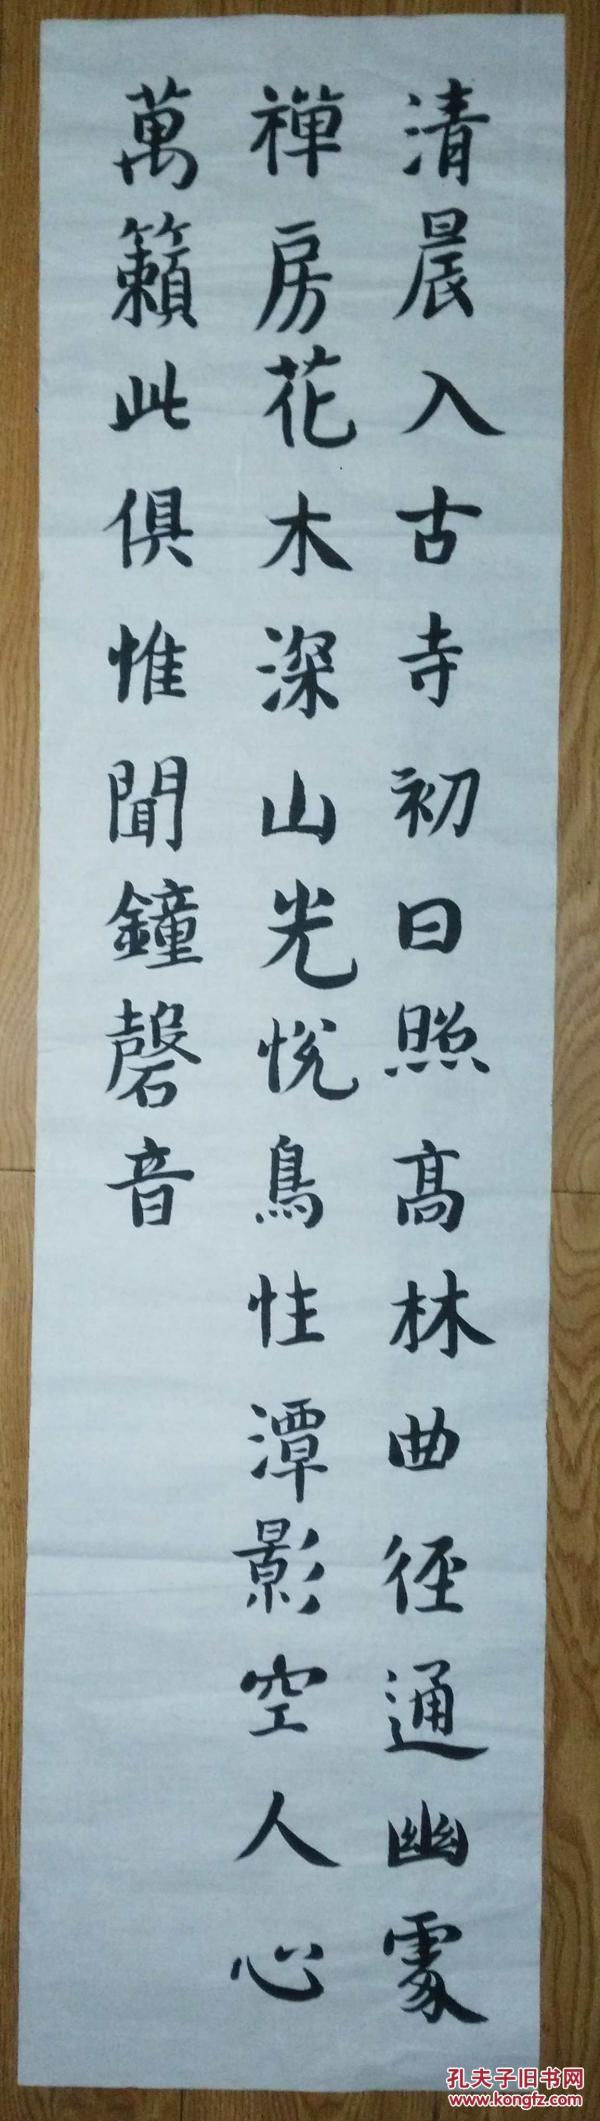 清晨入古寺初日照高林曲径通幽處
禅房花木深山光悦鳥性潭影空人心
萬籟此俱惟聞鐘磬音
孔夫子旧书网
www.kongfz.com